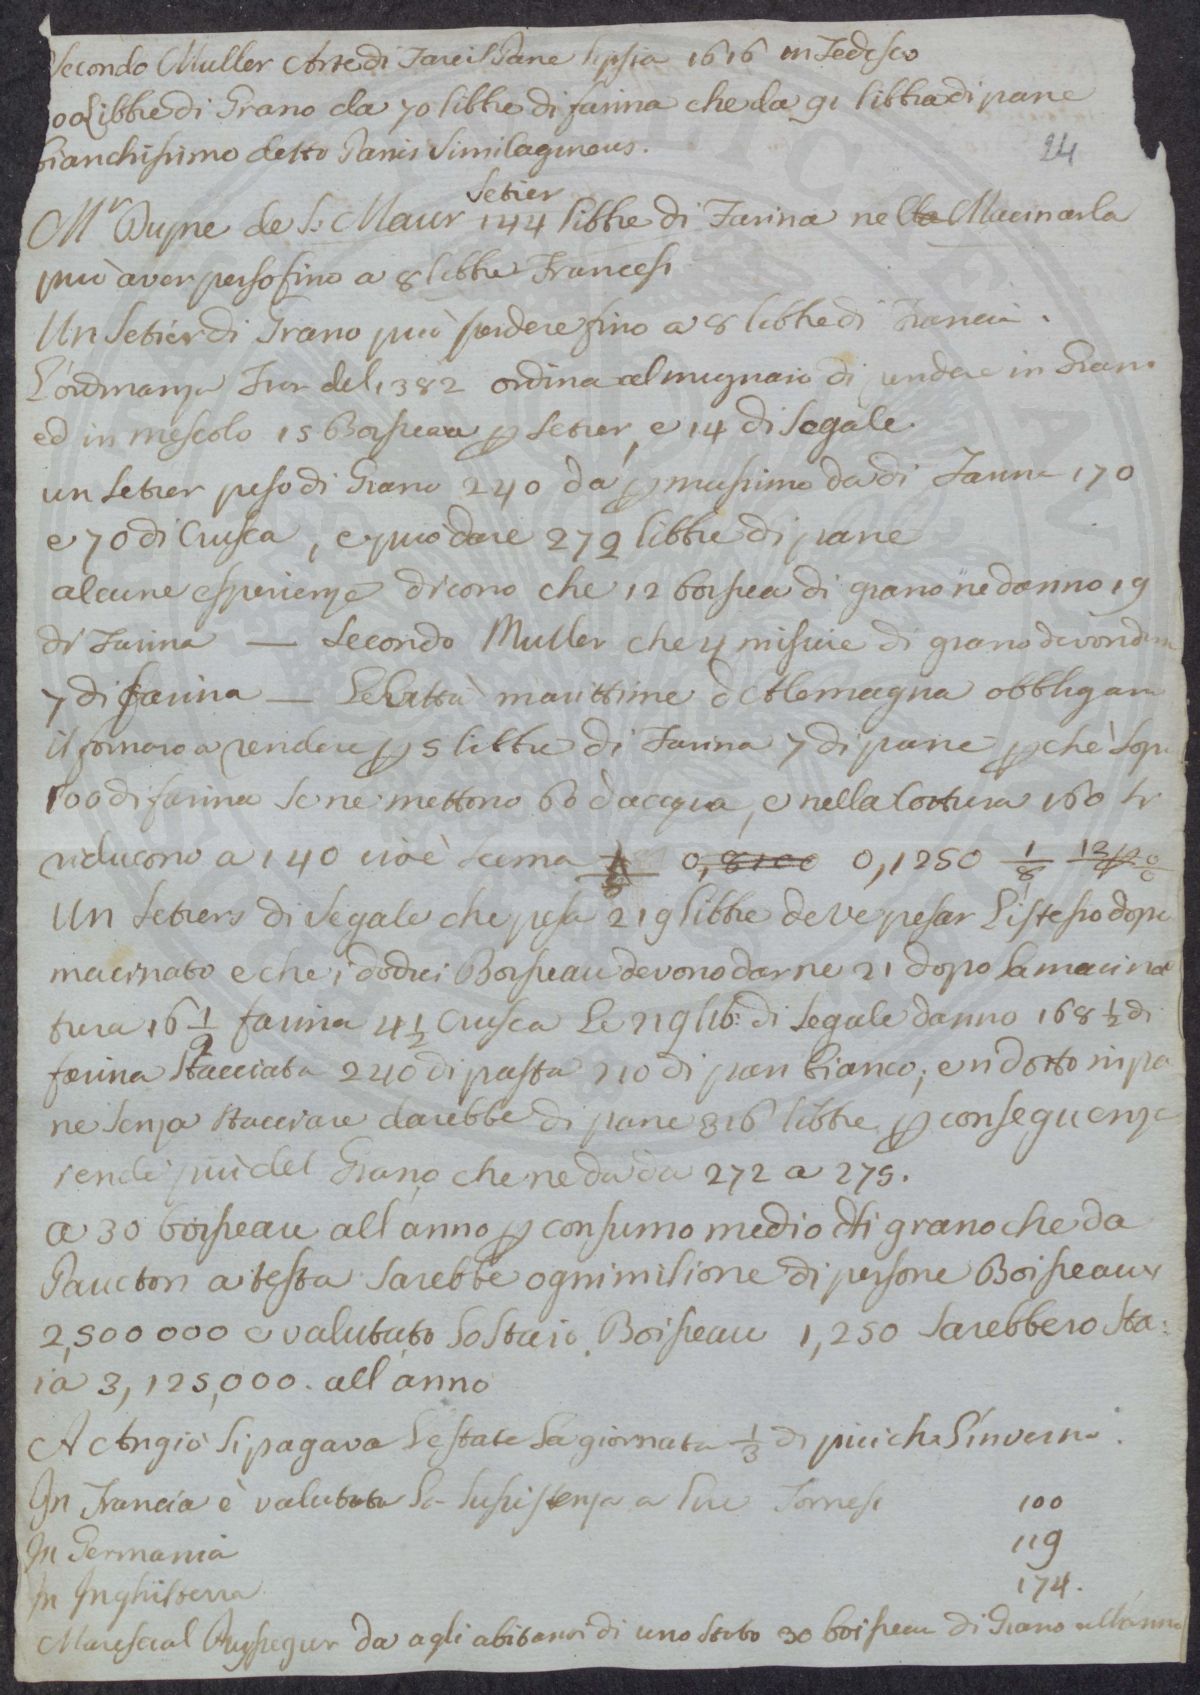 Secondo Muller Arte di Fare il Pane lipsia 1616 in Tedesco
100 Libbre di Grano da 70 libbre di farina che da 91 libbra di pane
bianchissimo detto Panis similagineus.
24
Setier
Mr Dupre de S: Maur 144 libbre di Farina nella Macinarla
può aver perso fino a 8 libbre Francesi
Un Setier di Grano può perdere fino a 8 libbre di Francia.
L'ordinanza Fur del 1382 ordina al mugnaio di rendere in Grano
ed in mescolo 15 Boisseau p Setier, e 14 di Segale.
un Setier peso di Grano 240 da p massimo da di Farina 170
e 70 di Crusca, e può dare 272 libbre di pane
alcune esperienze dicono che 12 boisseau di grano ne danno 19
di Farina — Secondo Muller che 4 misure di grano devon dare
7 di farina — Le Città marittime d'Alemagna obbligano
il fornaro a rendere p 5 libbre di Farina 7 di pane p chè sopra
100 di farina se ne mettono 60 d'acqua, e nella Cottura 160 si
riducono a 140 cioè scema 0,8100 0,1250 1/8 12
Un Setiers di segale che pesa 219 libbre deve pesar l'istesso dopo
macinato e che i dodici Boisseau devono darne 21 dopo la macina
tura 16 1/2 farina 4 1/2 Crusca Le 219 lib: di segale danno 168 1/2 di
farina stacciata 240 di pasta 210 di pan bianco; e ridotto in pa
ne senza stacciare darebbe di pane 316 libbre p conseguenza
rende più del Grano che ne da da 272 a 275.
a 30 boisseau all'anno p consumo medio di grano che da
Paucton a testa sarebbe ogni milione di persone Boisseaux
2,500000 e valutato lo staio Boisseau 1,250 sarebbero sta:
ia 3,125,000. all'anno
A Angiò si pagava l'estate la giornata 1/3 di più che l'inverno.
In Francia è valutata la sussistenza a lire Tornesi 100
In Germania 119
In Inghilterra 174.
Marescial Puysegur da agli abitanti di uno stato 30 boisseau di Grano all'anno